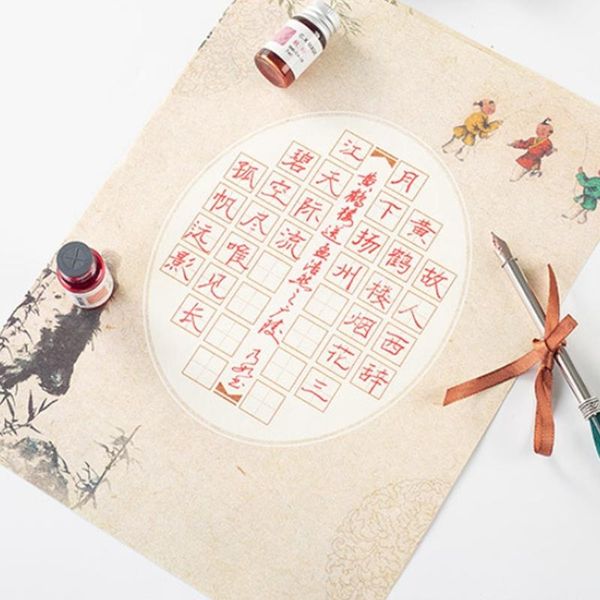 故人西辞
黄鹤楼烟花三
月下扬州
黄鹤楼送孟浩然之广陵
孤帆远影
碧空尽唯见长
江天际流